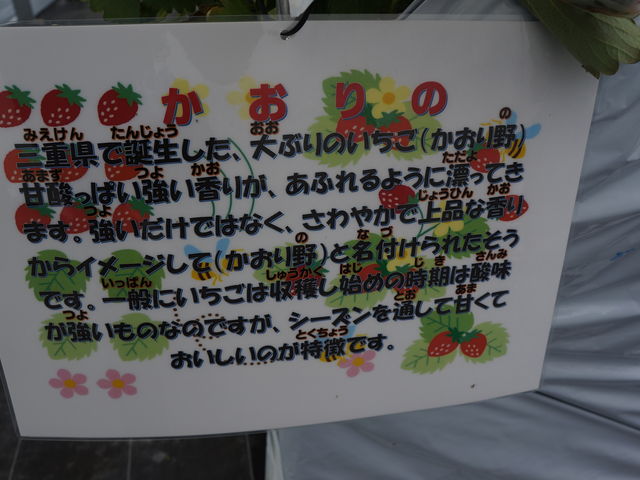 かおりの
三重県で誕生した、大ぶりのいちご(かおり野)
甘酸っぱい強い香りが、あふれるように漂ってき
ます。強いだけではなく、さわやかで上品な香り
からイメージして(かおり野)と名付けられたそう
です。一般にいちごは収穫し始めの時期は酸味
が強いものなのですが、シーズンを通して甘くて
おいしいのが特徴です。